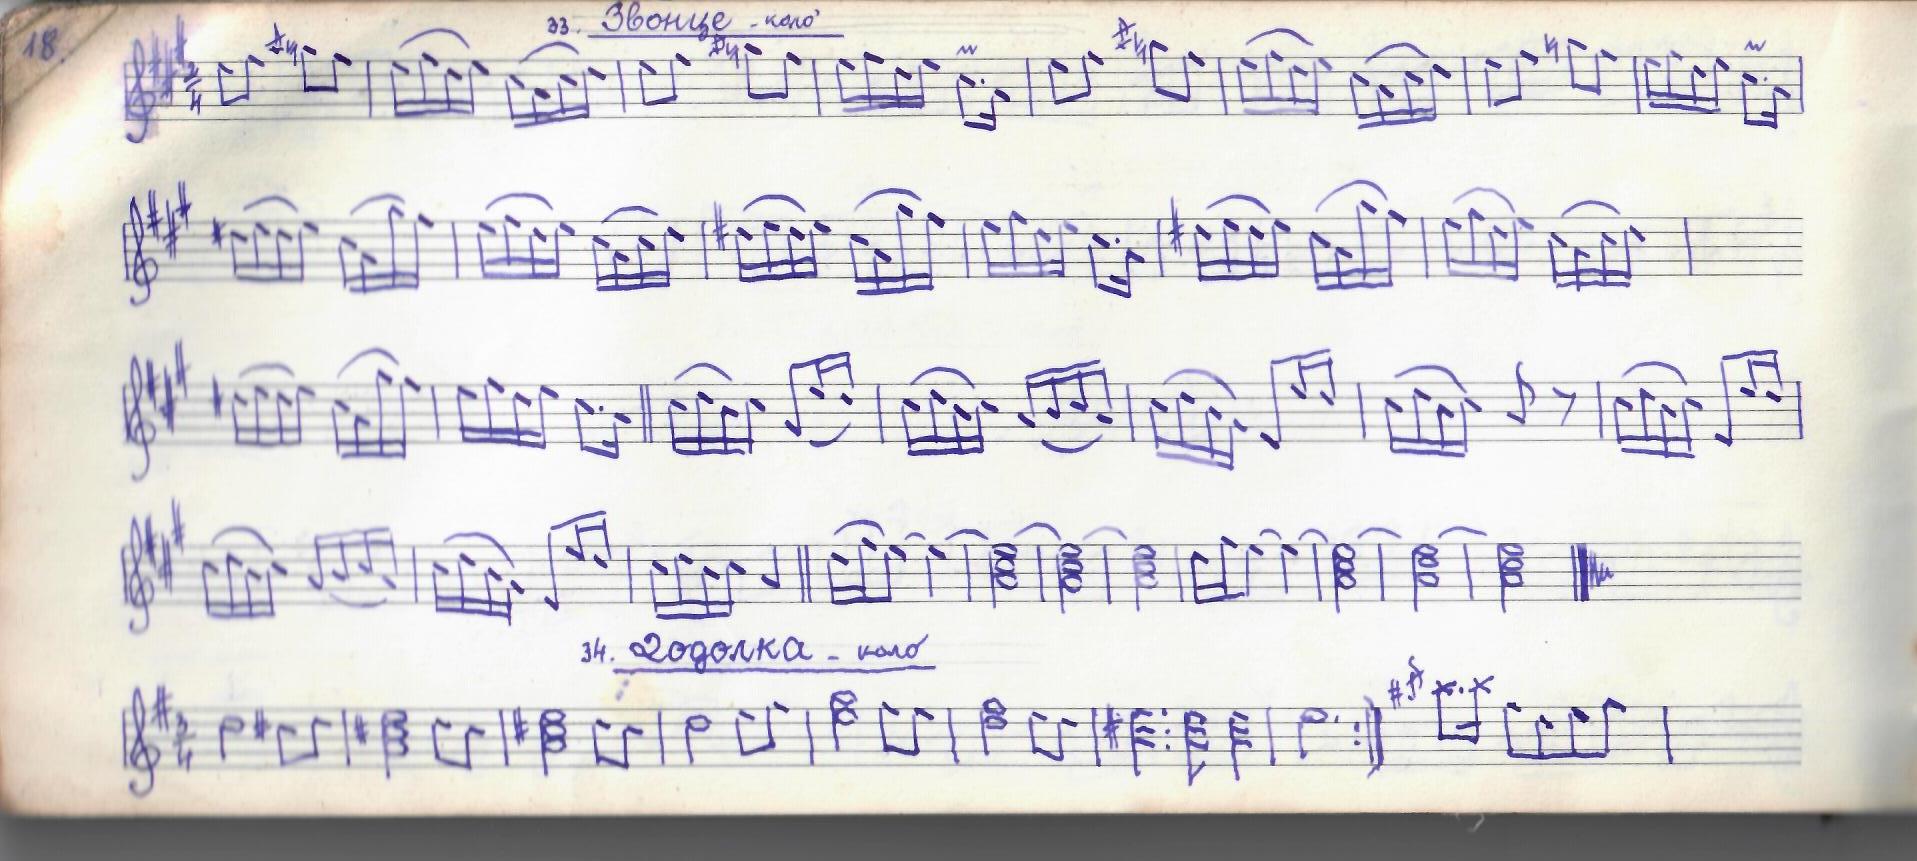 18.
33. Звонце - коло
2
4
34. Годолка - коло
3
4